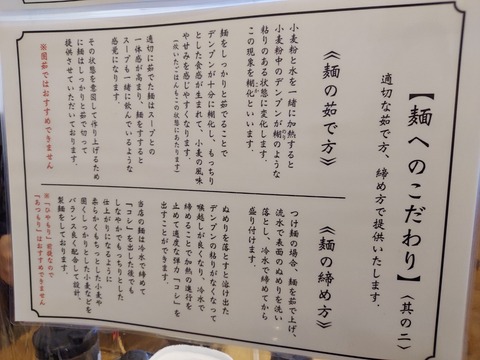 【麺へのこだわり】〈其の二〉
適切な茹で方、締め方で提供いたします。
《麺の茹で方》
小麦粉と水を一緒に加熱すると
小麦粉中のデンプンが糊のような
のり
粘りのある状態に変化します。
この現象を糊化といいます。
こか
麺をしっかりと茹でることで
デンプンが十分に糊化し、もっちり
とした食感が生まれて、小麦の風味
や甘みを感じやすくなります。
(炊いたごはんもこの状態にあたります)
適切に茹でた麺はスープとの
一体感が高まり、麺をすすると
スープも一緒に飲んでいるような
感覚になります。
その状態を意図して作り上げるため
に麺はしっかりと茹で切って
提供させていただいております。
※固茹ではおすすめできません
《麺の締め方》
つけ麺の場合、麺を茹で上げ、
流水で表面のぬめりを洗い
落とし、冷水で締めてから
盛り付けます。
ぬめりを落とすと溶け出た
デンプンの粘りがなくなって
喉越しが良くなり、冷水で
締めることで加熱の進行を
止めて適度な弾力「コシ」を
出すことができます。
当店の麺は冷水で締めて
「コシ」を出した後でも
しなやかでもっちりとした
仕上がりになるように
柔らかくもちっとした小麦や
固くしっかりとした小麦などを
バランス良く配合して設計、
製麺をしております。
※「ひやもり」前提なので
「あつもり」はおすすめできません